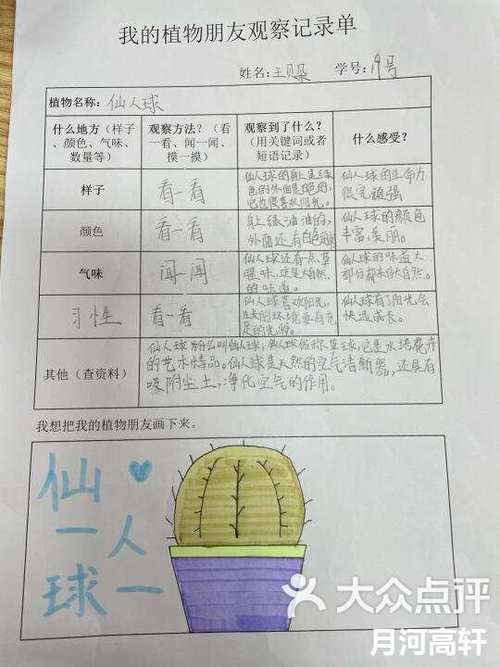 我的植物朋友观察记录单
姓名：王贝 学号：19号
植物名称：仙人球
什么地方（样子、颜色、气味、数量等）
观察方法？（看一看、闻一闻、摸一摸）
观察到了什么？（用关键词或者短语记录）
什么感受？
样子
看一看
仙人球的身上是绿色的外面是
仙人球的生命力很顽强
颜色
看一看
身上绿油油的，外面还有白色
仙人球的颜色丰富，美丽。
气味
闻一闻
仙人球还有一点草腥味，这是大自然的味道
仙人球的味道大部分都来自大自然。
习性
看一看
仙人球喜欢阳光，生长的环境要有充足的光
仙人球有了阳光会快速成长。
其他（查资料）
仙人球为什么叫仙人球，仙人球俗称草球，它是水培花卉的艺术精品。仙人球是天然的空气清新器，还具有吸附尘土，净化空气的作用。
我想把我的植物朋友画下来。
仙
一人
球一
大众点评
月河高轩